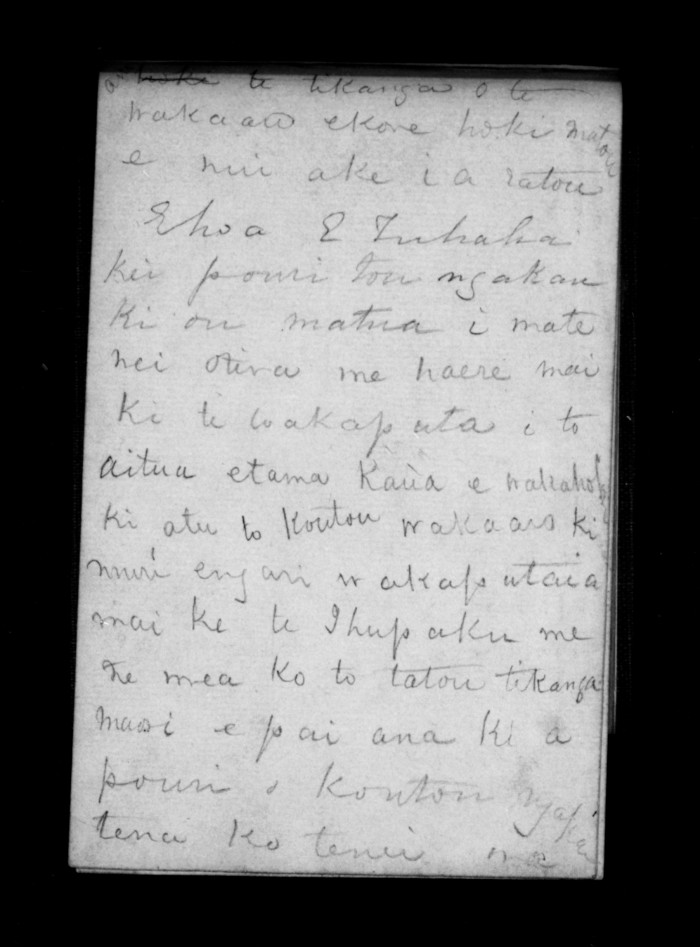 hoki te tikanga o te
wakaaro ekore hoki matou
e nui ake i a ratou
Ehoa E Tuhaha
kei pouri tou ngakau
ki ou matua i mate
nei otira me haere mai
ki te wakaputa i to
aitua etama Kaua e wakahoki
ki atu to Koutou wakaaro ki
muri engari wakaputaia
mai ke te Ihupuku me
he mea ko to tatou tikanga
maori e pai ana ki a
pouri o Koutou
tena ko tenei